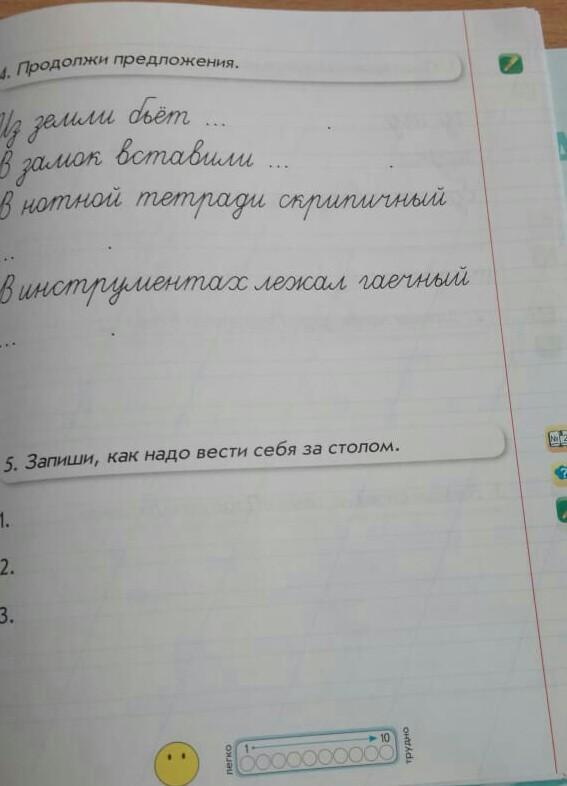 4. Продолжи предложения.
Из земли бьёт ...
В замок вставили ... .
В нотной тетради скрипичный
... .
В инструментах лежал гаечный
... .
5. Запиши, как надо вести себя за столом.
1.
2.
3.
легко 1 10 трудно